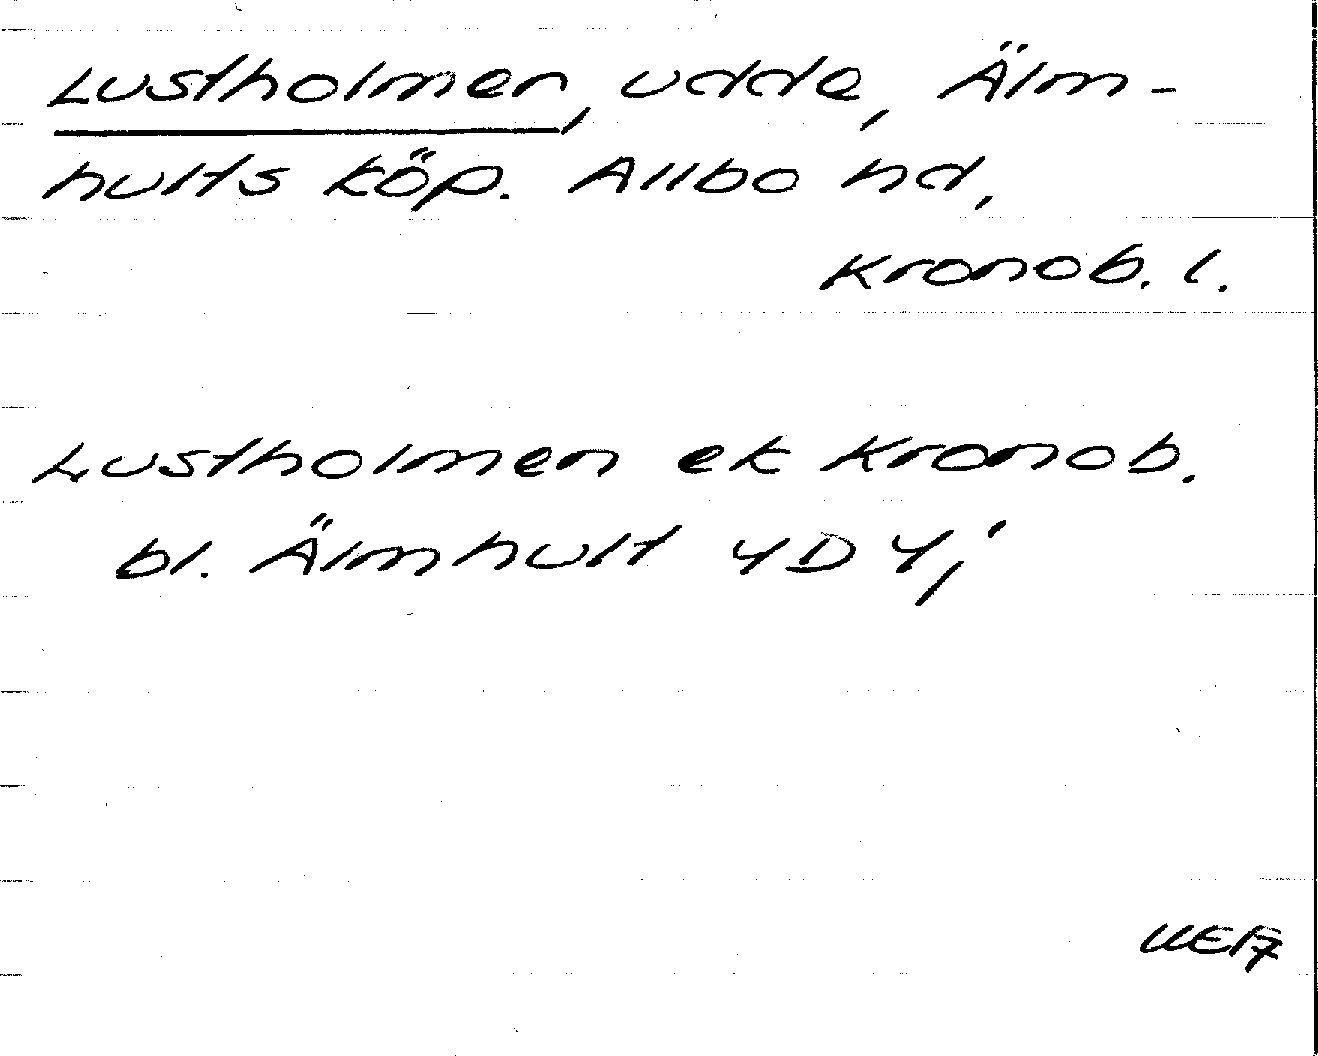 Lustholmen, udde, Älm-
hults köp. Allbo hd,
Kronob. l.
Lustholmen ek Kronob.
bl. Älmhult 4D 4 j